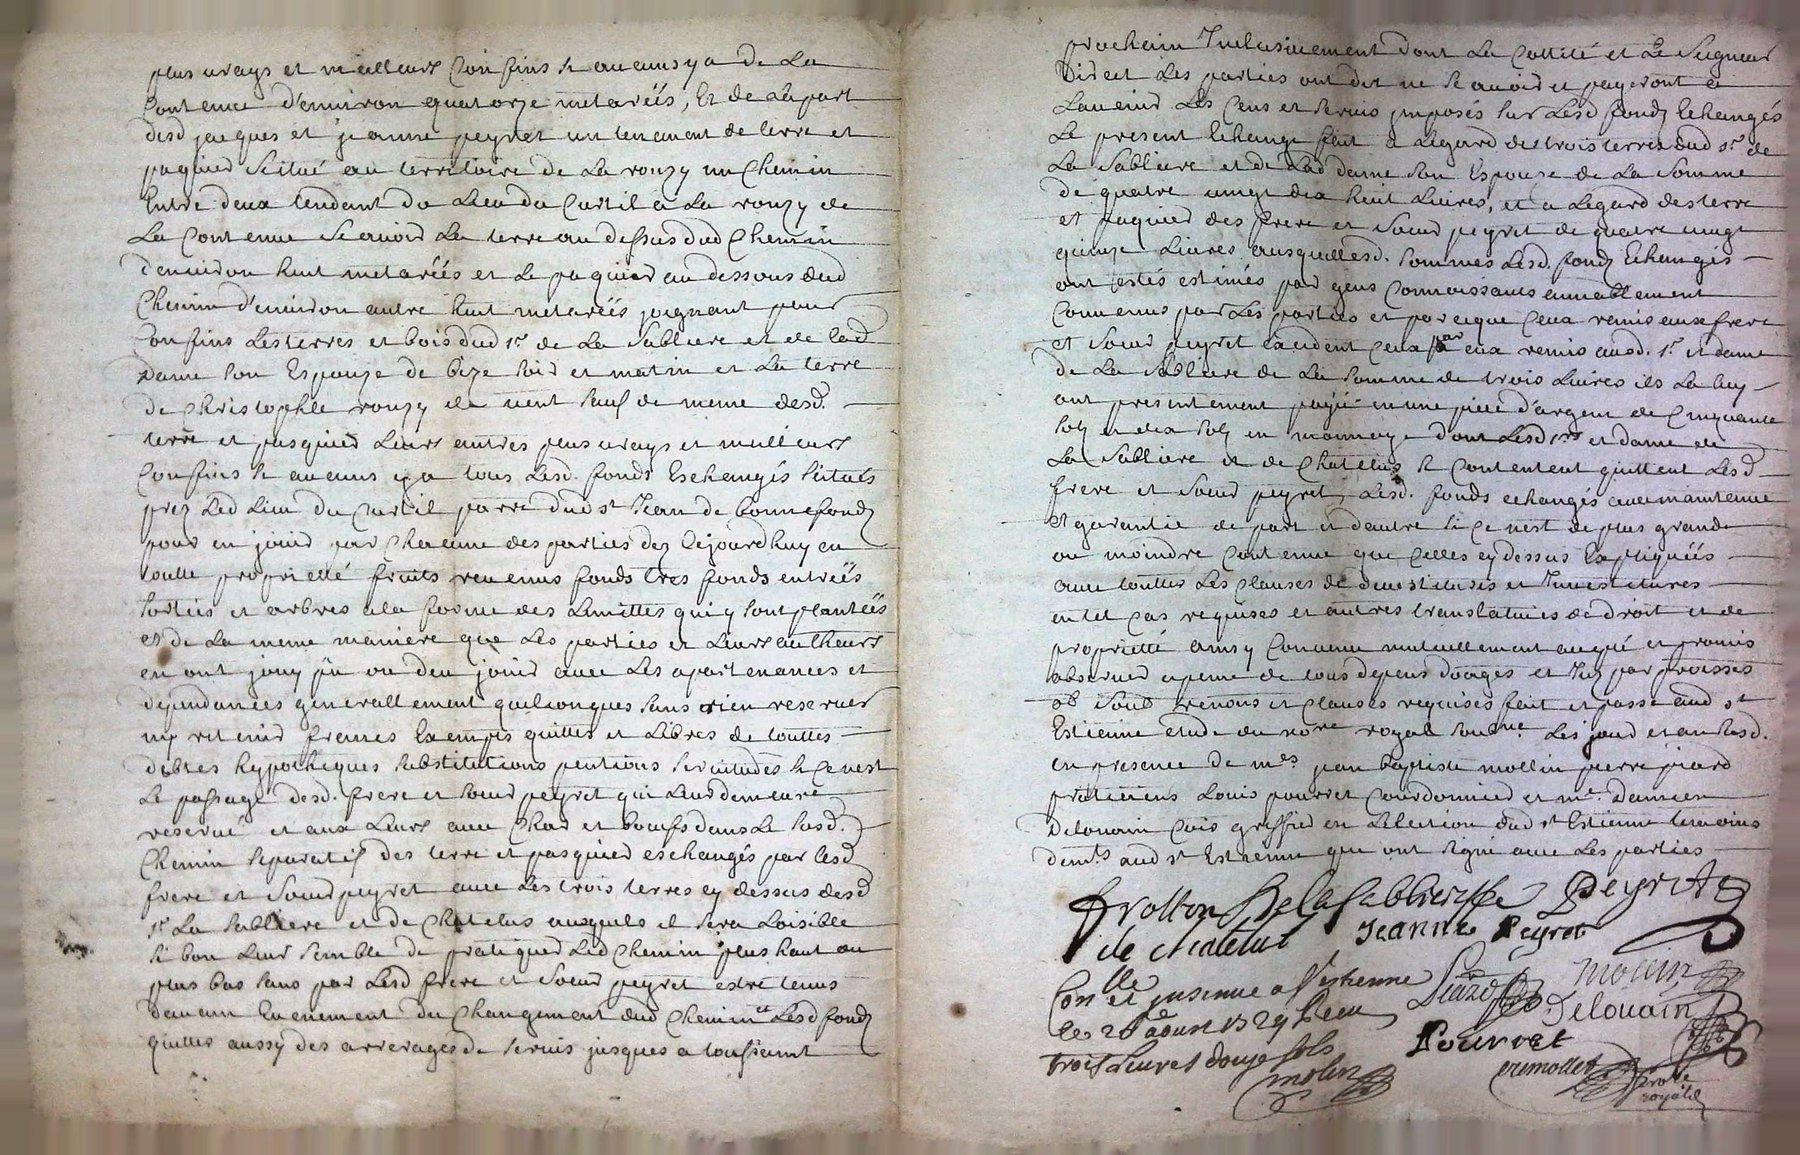 plus vrays et meilleurs Confins se aucuns y a de La
Contenue d'environ quatorze metarées, Et de la part
desd jacques et jeanne peyret un tenement de terre et
paquier Scitué au territoire de La rouzy un Chemin
Entre deux tendant du Lieu du Curtil a La rouzy de
La Contenue Scavoir La terre au dessus dud Chemin
d'environ huit metarées et Le paquier au dessous dud
Chemin d'environ autre huit metarées joignant pour
Confins Les terres et bois dud Sr. de La Sabliere et de lad
Dame son Espouze de bize soir et matin et La terre
de Christophle rouzy de vent sauf de meme desd.
terre et pasquier Leurs autres plus vrays et meilleurs
Confins se aucuns y a tous Lesd. fonds Eschangés situés
prez Led Lieu du Curtil parre dud st Jean de bonnefondz
pour en jouir par Chacune des parties dez cejourdhuy en
toutte proprietté fruits revenus fonds tres fonds entrées
sorties et arbres a la forme des Limittes qui y sont plantées
et de La meme maniere que Les parties et Leurs autheurs
en ont jouy pû ou deu jouir avec Les apartenances et
dépendances generallement quelconques sans rien reserver
ny retenir francs Exempts quittes et Libres de touttes
debtes hypotheques substitutions pentions servitudes si ce nest
Le passage desd. frere et soeur peyret qui Leur demeure
reservé et aux Leurs avec Char et boeufs dans Le susd.
Chemin separatif des terre et pasquier eschangés par lesd
frere et Soeur peyret avec Les trois terres cy dessus desd
Sr. La Sabliere et de Chatelus ausquels il sera Loisible
si bon Leur semble de pratiquer Led Chemin plus haut ou
plus bas sans par Lesd frere et Soeur peyret estre tenus
daucun Evenement du Changement dud Chemin et Lesd fondz
quittes aussy des arrerages de servis jusques a toussaint
prochain Inclusivement dont La Cottité et Le Seigneur
Direct Les parties ont dit ne scavoir et payeront a
Lavenir Les Cens et servis jmposés sur Lesd fondz Echangés
Le present Echange fait a Légard des trois terres dud Sr. de
La Sabliere et de Lad dame son Espouze de La Somme
de quatre vingt dix huit Livres, et a Légard des terre
et paquier des frere et Soeur peyret de quatre vingt
quinze Livres ausquellesd. sommes Lesd. fondz Echangés
ont estés estimés par gens Connoissants amiablement
Convenus par Les parties et parceque Ceux remis auxd frere
et Soeur peyret Excedent Ceux par eux remis ausd. Sr. et dame
de La Sabliere de La Somme de trois Livres ils La Luy
ont presentement payé en une piece d'argent de Cinquante
solz et dix solz en monnoye dont Lesd Srs et dame de
La Sabliere et de Chatelus se Contentent quittent Lesd
frere et Soeur peyret, Lesd. fonds echangés avec maintenue
et garantie de part et dautre si Ce nest de plus grande
ou moindre Contenue que Celles cy dessus Expliquées
avec touttes Les Clauses de devestitures et Investitures
en tel cas requises et autres translatives de droit et de
proprietté ainsy Convenu mutuellement accepté et promis
observer a peine de tous depens domages et par promesses
ob soub renons et Clauses requises fait et passé aud St
Estienne etude du nore royal soubne. Les jour et an susd.
en presence de mes jean baptiste mollin pierre piard
praticiens Louis pourret Courdonnier et me. Damien
Delouain Cois greffier en Lelection dud st Estienne temoins
demts. aud st Estienne qui ont signé avec Les parties
frotton De la sabliere Peyret
de chatelut Jeanne Peyret
Conlle et jnsinué a St estienne Piard mollin
le 26 aoust 1729 Receu Delouain
trois Livres douze sols Pourret
molin
royal